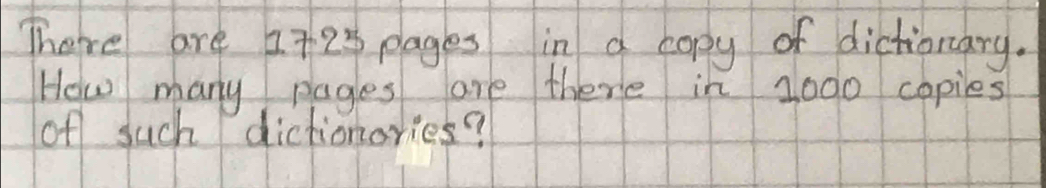 There are 1725 pages in a copy of dictionary.
How many pages are there in 1000 copies
of such dictionories?